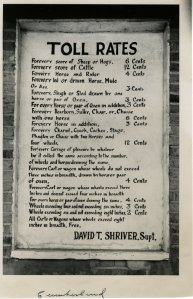 TOLL RATES
For every score of Sheep or Hogs, 6 Cents
For every score of Cattle 12 Cents
For every Horse and Rider 4 Cents
For every led or driven Horse, Mule
or Ass, 3 Cents
For every Sleigh or Sled drawn by one
horse or pair of Oxen, 3 Cents
For every horse or pair of Oxen in addition, 3 Cents
For every Dearborn, Sulky, Chair, or Chaise
with one horse 6 Cents
For every Horse in addition, 3 Cents
For every Chariot, Coach, Coachee, Stage,
Phaeton or Chaise with two Horses and
four wheels, 12 Cents
For every Carriage of pleasure by whatever
be it called the same according to the number
of wheels and horses drawing the same
For every Cart or wagon whose wheels do not exceed
three inches in breadth, drawn by one horse or pair
of oxen, 4 Cents
For every Cart or wagon whose wheels exceed three
inches and does not exceed four inches in breadth
For every horse or pair of oxen drawing the same, 4 Cents
Wheels exceeding four and not exceeding six inches, 3 Cents
Wheels exceeding six and not exceeding eight inches, 2 Cents
All Carts or Wagons whose wheels exceed eight
inches in breadth, Free.
DAVID T. SHRIVER, Supt.